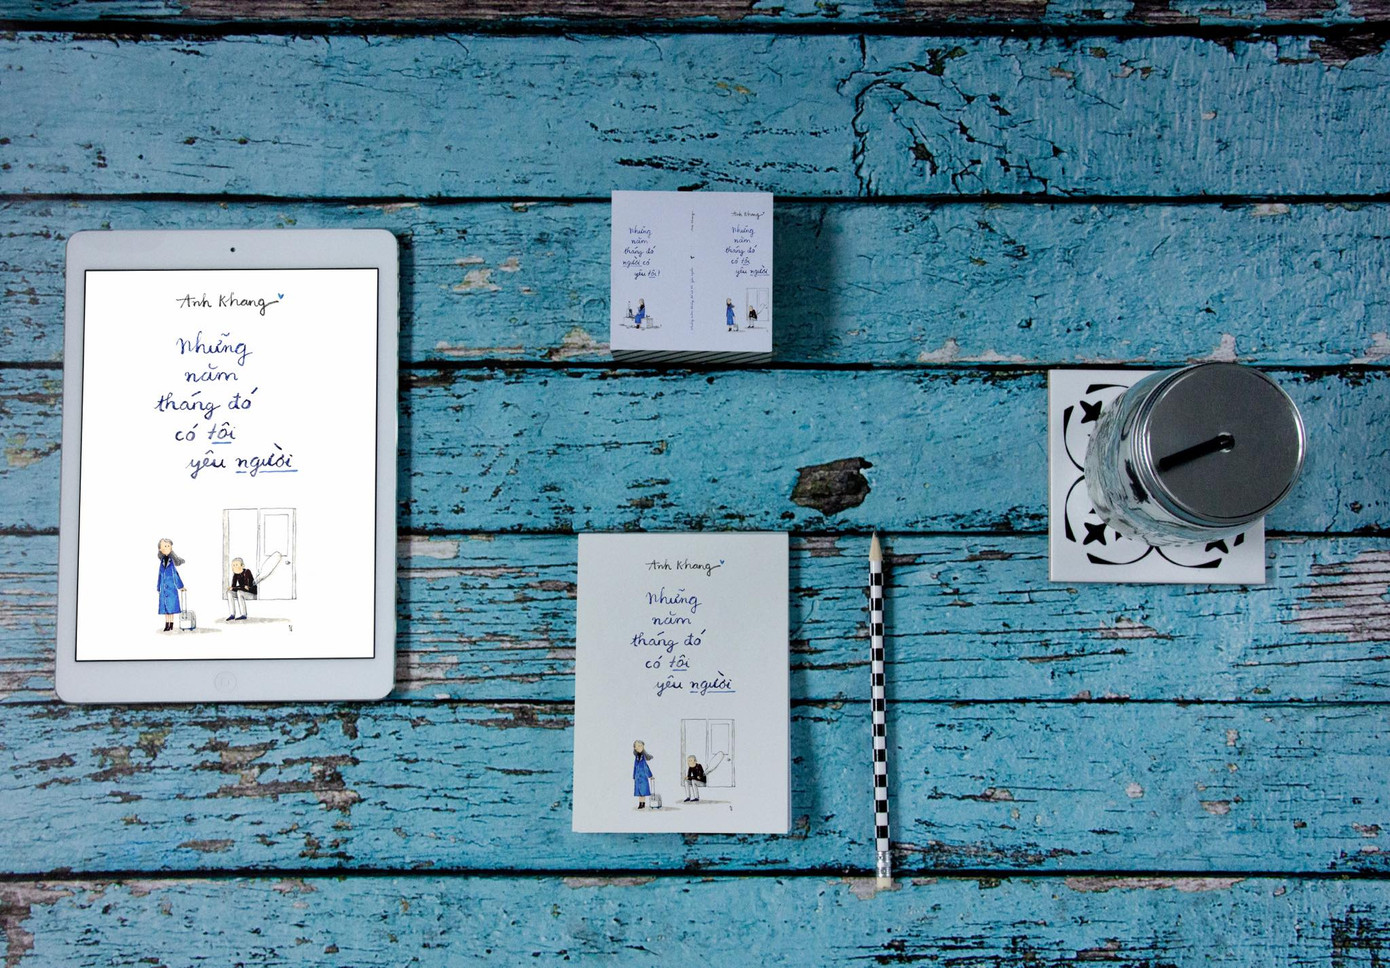 Anh Khang
Những
năm
tháng đó
có tôi
yêu người
Những
năm
tháng đó
người có
yêu tôi!
Anh Khang
Những
năm
tháng đó
có tôi
yêu người
Anh Khang
Những
năm
tháng đó
có tôi
yêu người